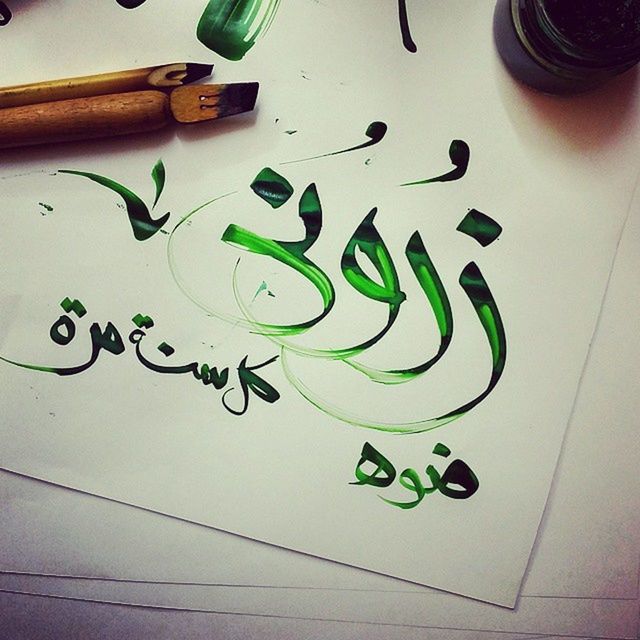 زُرُوني
كل سنة مرة
ضوه